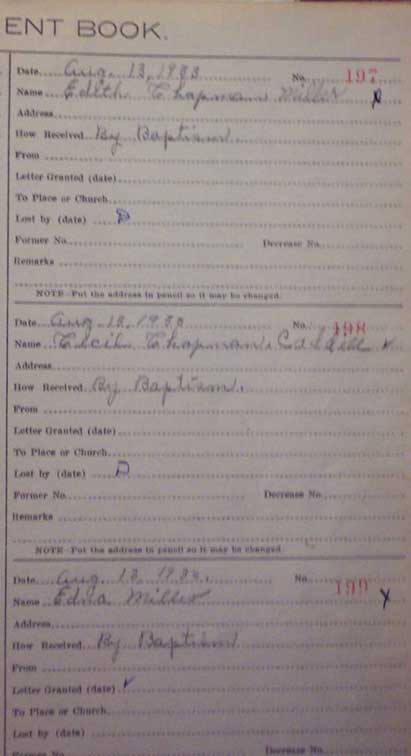 ENT BOOK.
Date Aug. 13, 1933 No. 197
Name Edith Chapman Miller
Address
How Received By Baptism
From
Letter Granted (date)
To Place or Church
Lost by (date) D
Former No. Decrease No.
Remarks
NOTE—Put the address in pencil so it may be changed.
Date Aug. 13, 1933 No. 198
Name Cecil Chapman
Address
How Received By Baptism.
From
Letter Granted (date)
To Place or Church
Lost by (date) D
Former No. Decrease No.
Remarks
NOTE—Put the address in pencil so it may be changed.
Date Aug. 13, 1933. No. 199
Name Edna Miller
Address
How Received By Baptism
From
Letter Granted (date) ✓
To Place or Church
Lost by (date)
Former No. Decrease No.